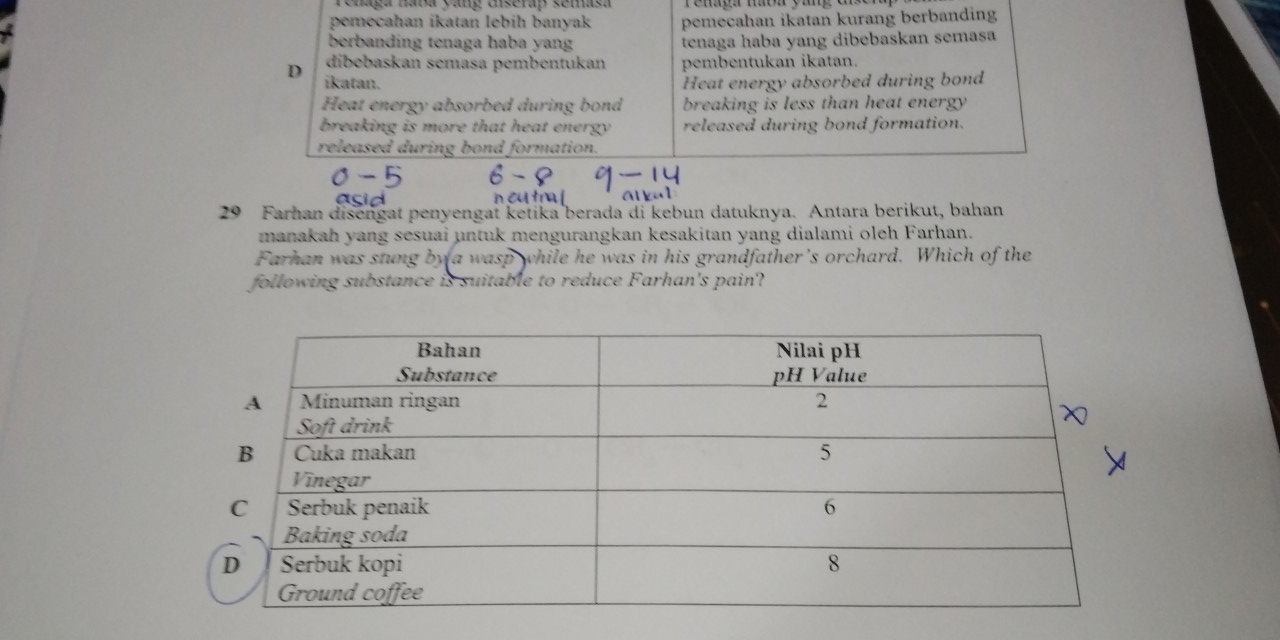 Tenaga haba yang diserap semasa
pemecahan ikatan lebih banyak
berbanding tenaga haba yang
dibebaskan semasa pembentukan
ikatan.
Heat energy absorbed during bond
breaking is more that heat energy
released during bond formation.
D
Tenaga haba yang diserap
pemecahan ikatan kurang berbanding
tenaga haba yang dibebaskan semasa
pembentukan ikatan.
Heat energy absorbed during bond
breaking is less than heat energy
released during bond formation.
0-5 6-8 9-14
asid neutral alkal:
29 Farhan disengat penyengat ketika berada di kebun datuknya. Antara berikut, bahan
manakah yang sesuai untuk mengurangkan kesakitan yang dialami oleh Farhan.
Farhan was stung by a wasp while he was in his grandfather's orchard. Which of the
following substance is suitable to reduce Farhan's pain?
Bahan Nilai pH
Substance pH Value
A Minuman ringan 2
Soft drink
B Cuka makan 5
Vinegar
C Serbuk penaik 6
Baking soda
D Serbuk kopi 8
Ground coffee